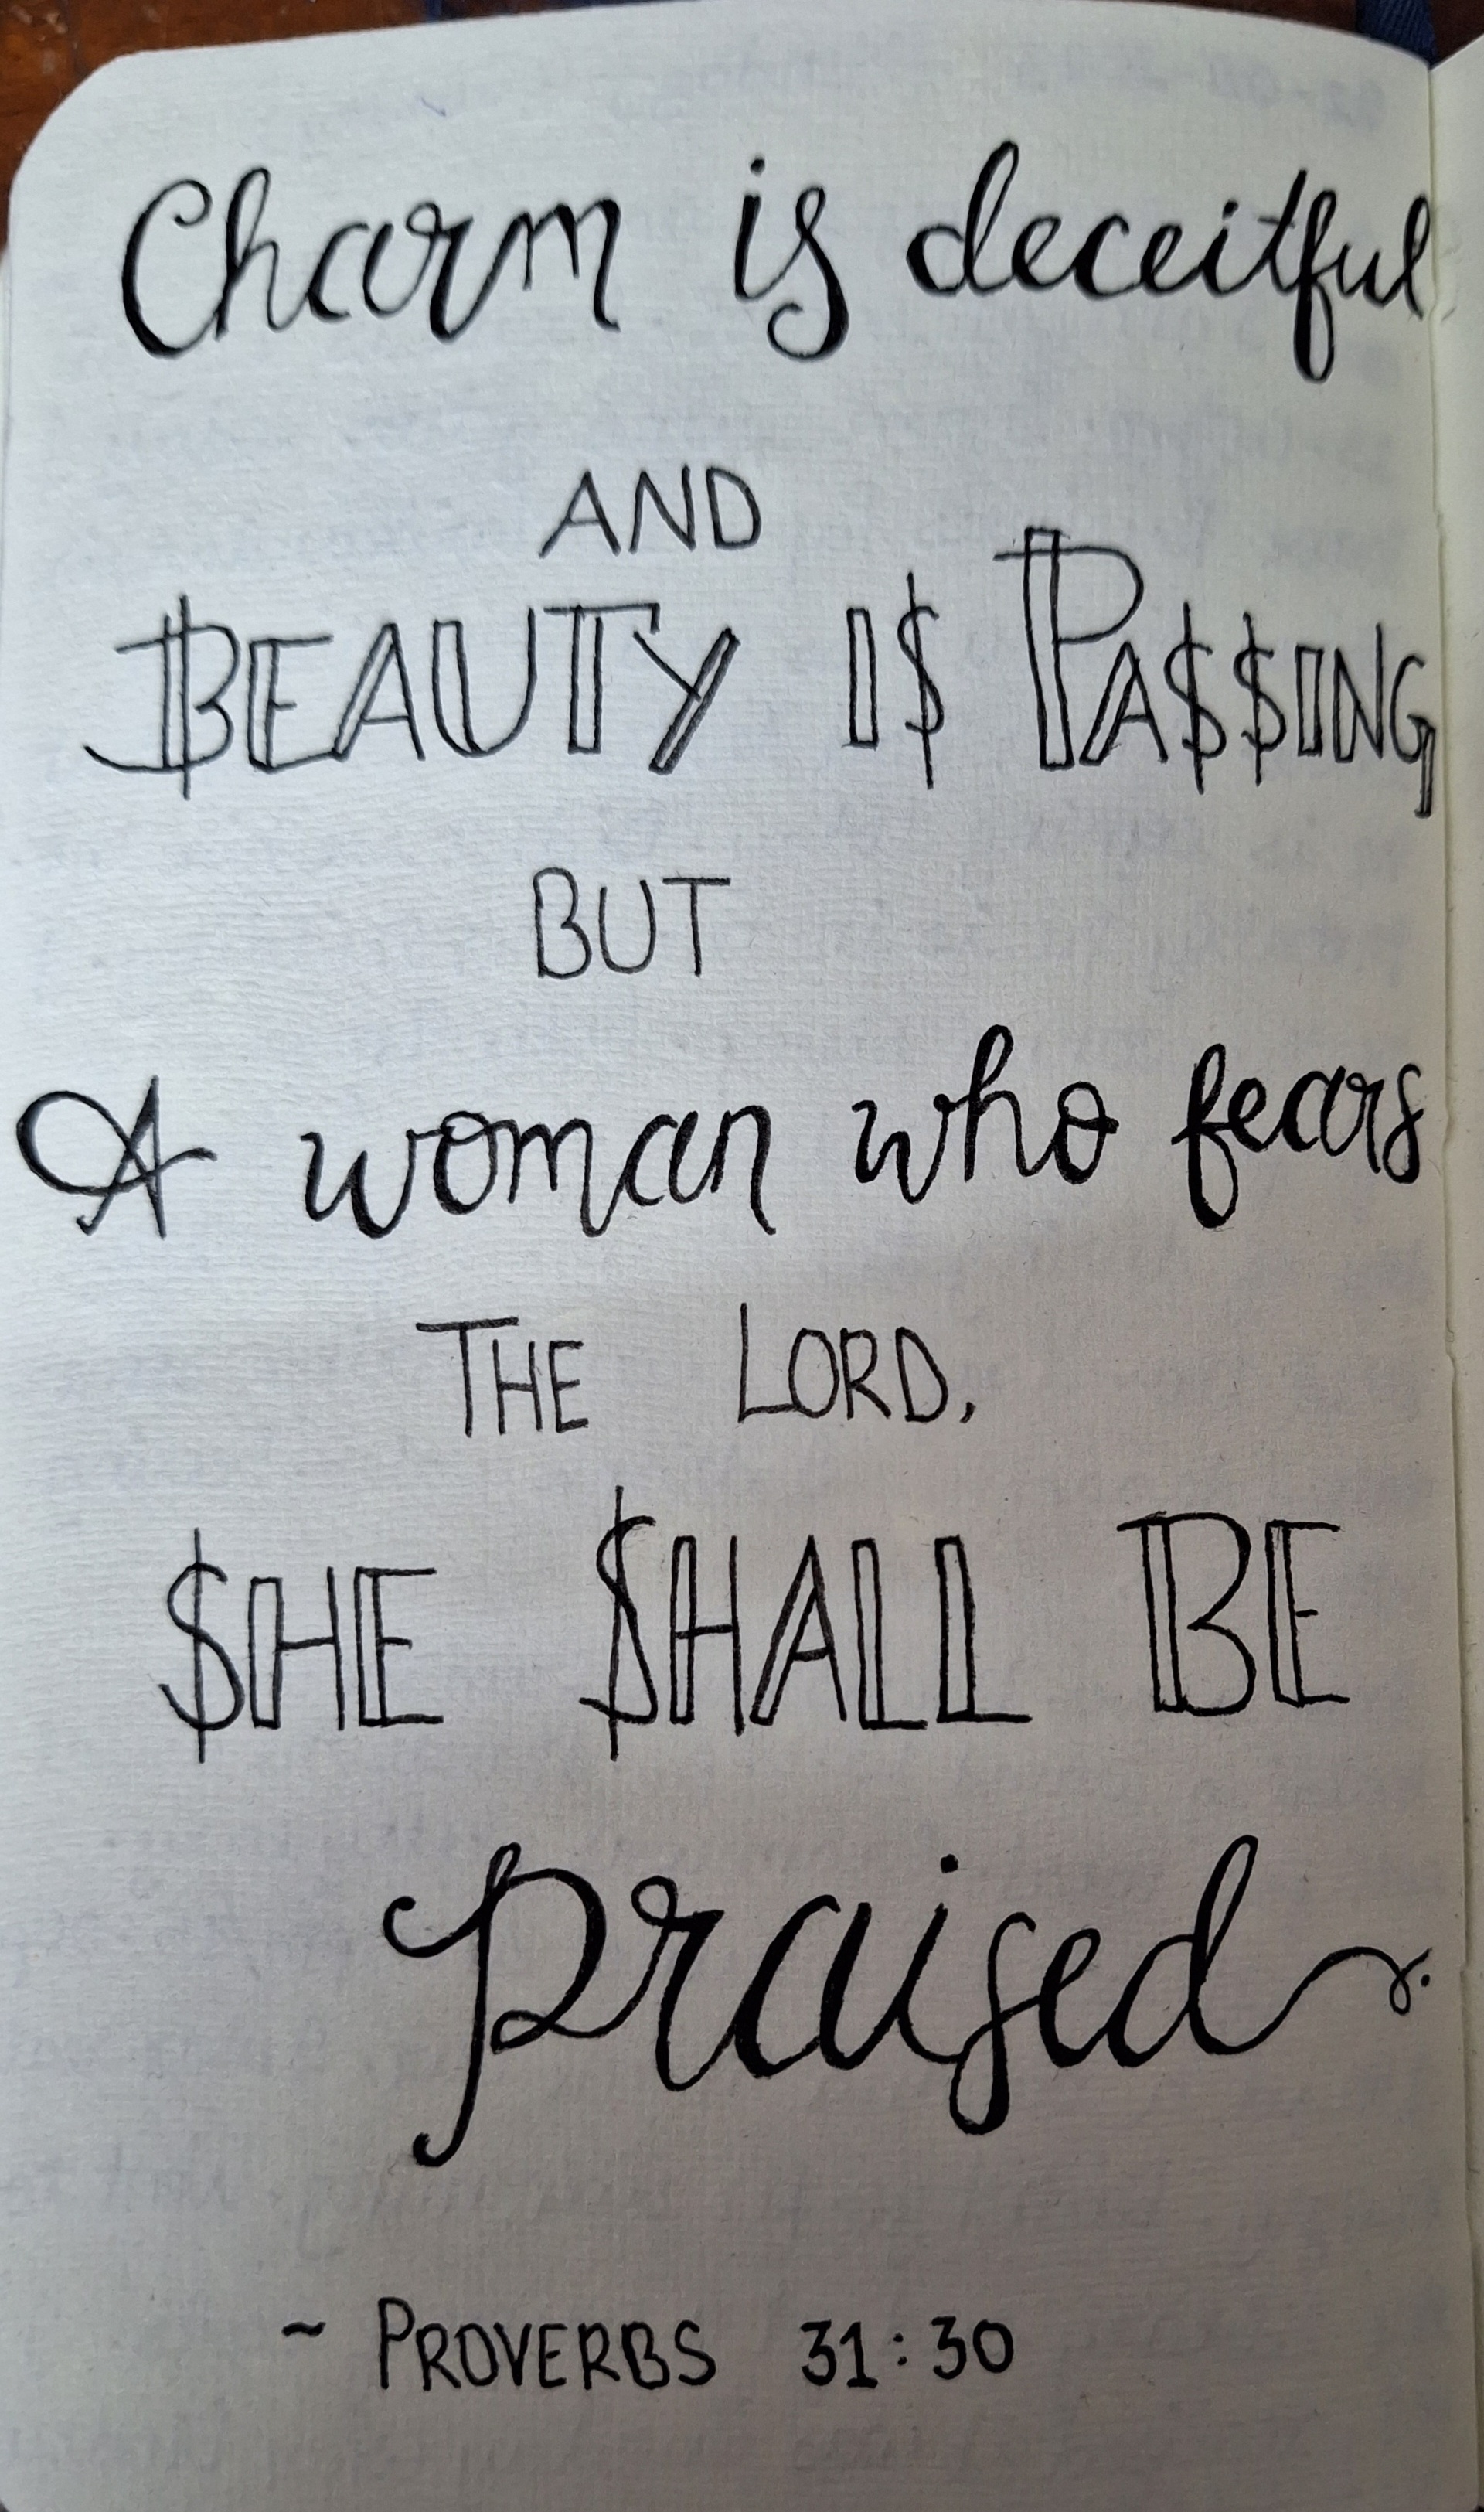 Charm is deceitful
AND
BEAUTY IS PASSING,
BUT
A woman who fears
THE LORD,
SHE SHALL BE
Praised.
~ PROVERBS 31:30